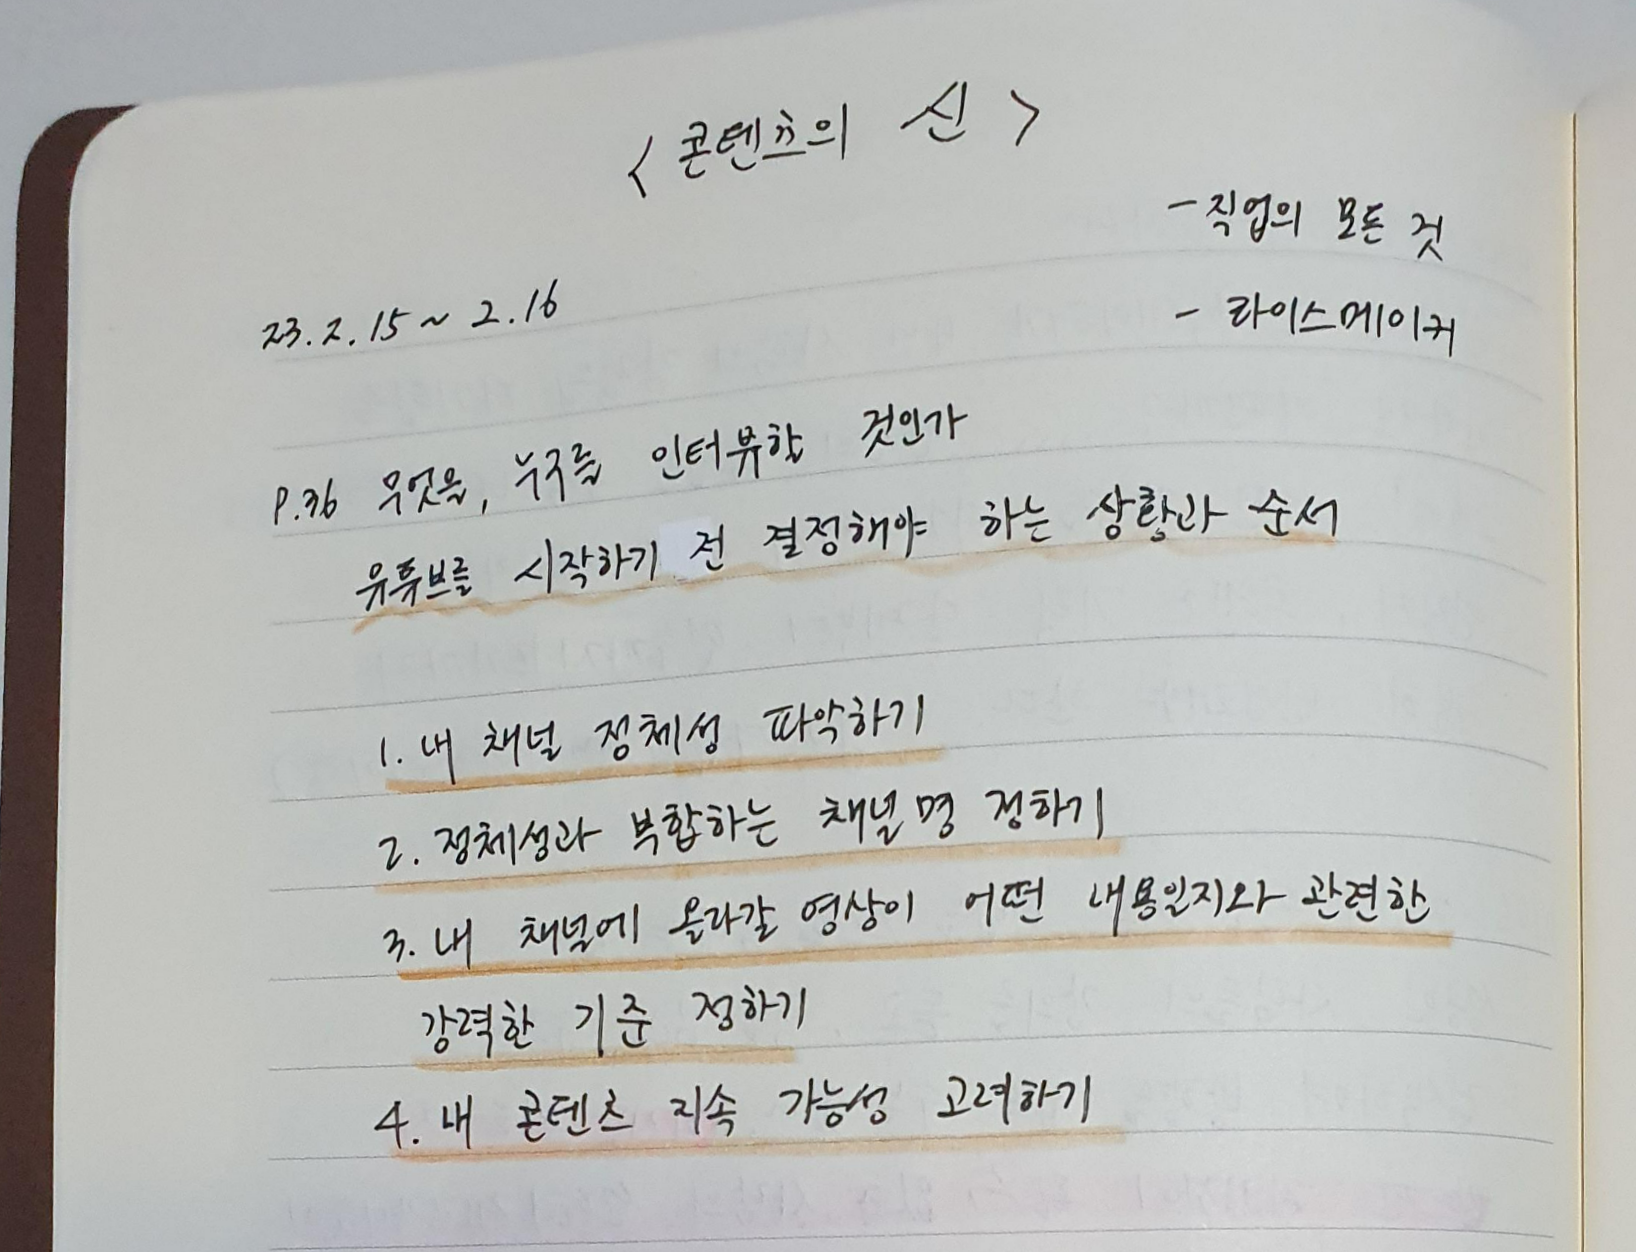 <콘텐츠의 신>
- 직업의 모든 것
23.2.15 ~ 2.16
- 라이스메이커
P.36 무엇을, 누구를 인터뷰할 것인가
유튜브를 시작하기 전 결정해야 하는 상황과 순서
1. 내 채널 정체성 파악하기
2. 정체성과 부합하는 채널명 정하기
3. 내 채널에 올라갈 영상이 어떤 내용일지와 관련한
강력한 기준 정하기
4. 내 콘텐츠 지속 가능성 고려하기